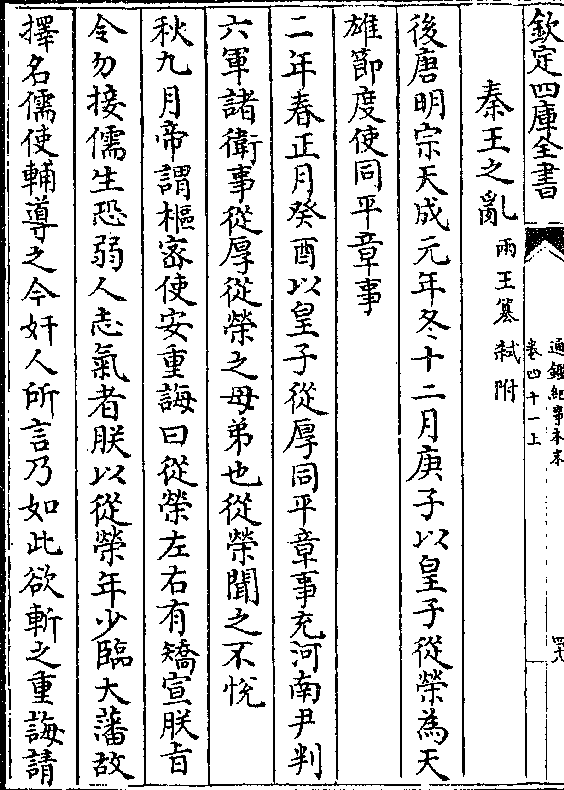 欽定四庫全書
通鑑紀事本末
卷四十一上
四八
秦王之亂兩王簒弑附
後唐明宗天成元年冬十二月庚子以皇子從榮為天
雄節度使同平章事
二年春正月癸酉以皇子從厚同平章事充河南尹判
六軍諸衛事從厚從榮之母弟也從榮聞之不悅
秋九月帝謂樞密使安重誨曰從榮左右有矯宣朕旨
令勿接儒生恐弱人志氣者朕以從榮年少臨大藩故
擇名儒使輔導之今奸人所言乃如此欲斬之重誨請